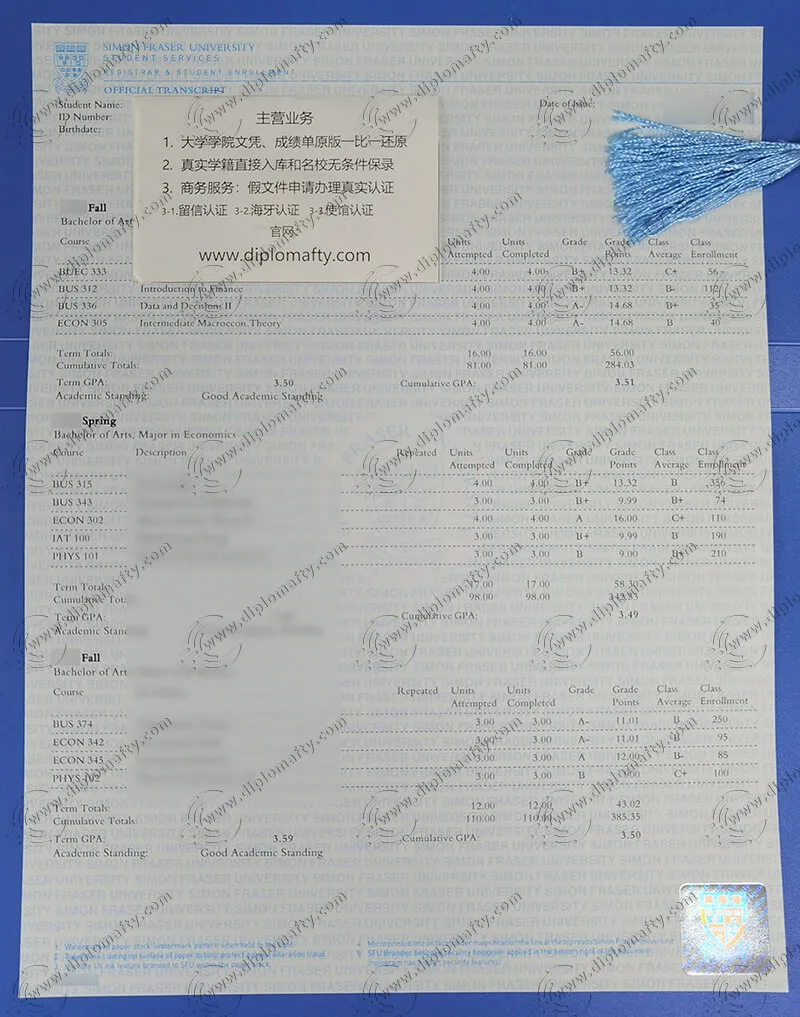 SIMON FRASER UNIVERSITY
STUDENT SERVICES
REGISTRAR & STUDENT ENROLLMENT
OFFICIAL TRANSCRIPT
Student Name:
Date of Issue:
ID Number:
Birthdate:
主营业务
1. 大学学院文凭、成绩单原版一比一还原
2. 真实学籍直接入库和名校无条件保录
3. 商务服务：假文件申请办理真实认证
3-1.留信认证 3-2.海牙认证 3-3.使馆认证
官网:
www.diplomafty.com
Fall
Bachelor of Art
Course Units Attempted Units Completed Grade Grade Points Class Average Class Enrollment
BUEC 333 4.00 4.00 B+ 13.32 C+ 56
BUS 312 Introduction to Finance 4.00 4.00 B+ 13.32 B-
BUS 336 Data and Decisions II 4.00 4.00 A- 14.68 B+ 35
ECON 305 Intermediate Macroecon Theory 4.00 4.00 A- 14.68 B 40
Term Totals: 16.00 16.00 56.00
Cumulative Totals: 81.00 81.00 284.03
Term GPA: 3.50 Cumulative GPA: 3.51
Academic Standing: Good Academic Standing
Spring
Bachelor of Arts, Major in Economics
Course Description Repeated Units Attempted Units Completed Grade Grade Points Class Average Class Enrollment
BUS 315 4.00 4.00 B+ 13.32 B 356
BUS 343 3.00 3.00 B+ 9.99 B+ 74
ECON 302 4.00 4.00 A 16.00 C+ 110
IAT 100 3.00 3.00 B+ 9.99 B 190
PHYS 101 3.00 3.00 B 9.00 B+ 210
Term Totals 17.00 17.00 58.30
Cumulative Tot: 98.00 98.00
Term GPA: Cumulative GPA: 3.49
Academic Stanc
Fall
Bachelor of Art
Course Repeated Units Attempted Units Completed Grade Grade Points Class Average Class Enrollment
BUS 374 3.00 3.00 A- 11.01 B 250
ECON 342 3.00 3.00 A- 11.01 B 95
ECON 345 3.00 3.00 A 12.00 B- 85
PHYS 102 3.00 3.00 B 9.00 C+ 100
Term Totals: 12.00 12.00 43.02
Cumulative Totals: 110.00 110.00 385.35
Term GPA: 3.59 Cumulative GPA: 3.50
Academic Standing: Good Academic Standing